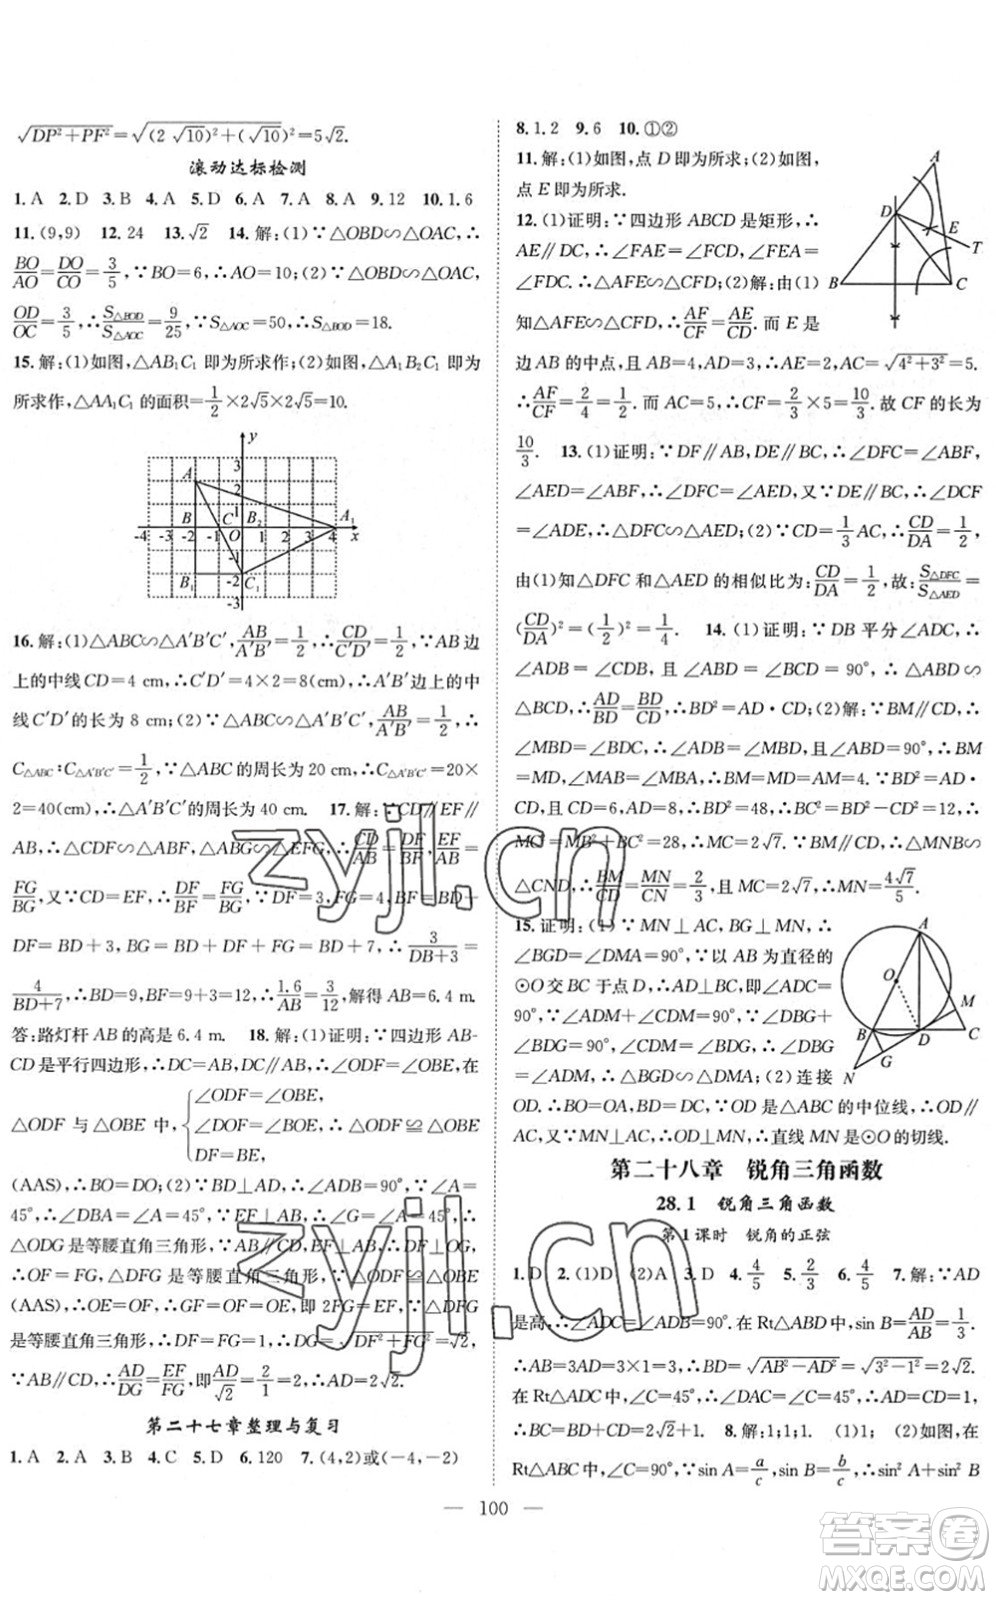 √(DP²+PF²)=√((2√10)²+(√10)²)=5√2.
滚动达标检测
1. A 2. D 3. B 4. A 5. D 6. A 7. A 8. A 9. 12 10. 1. 6
11. (9,9) 12. 24 13. √2 14. 解:(1)∵△OBD∽△OAC,∴
BO/AO=DO/CO=3/5,∵BO=6,∴AO=10;(2)∵△OBD∽△OAC,
OD/OC=3/5,∴S△BOD/S△AOC=9/25,∵S△AOC=50,∴S△BOD=18.
15. 解:(1)如图,△AB₁C₁ 即为所求作;(2)如图,△A₁B₂C₁ 即为
所求作,△AA₁C₁ 的面积=1/2×2√5×2√5=10.
y
3
A 2
1
B C B₂ A₁
-4 -3 -2 -1 O 1 2 3 4 x
-1
B₁ -2 C₁
-3
16. 解:(1)△ABC∽△A′B′C′,AB/A′B′=1/2,∴CD/C′D′=1/2,∵AB边
上的中线CD=4 cm,∴C′D′=4×2=8(cm),∴A′B′边上的中
线C′D′的长为 8 cm;(2)∵△ABC∽△A′B′C′,AB/A′B′=1/2,∴
C△ABC∶C△A′B′C′=1/2,∵△ABC的周长为 20 cm,∴C△A′B′C′=20×
2=40(cm)∴△A′B′C′的周长为 40 cm. 17. 解:∵CD∥EF∥
AB,∴△CDF∽△ABF,△ABG∽△EFG,∴CD/AB=DF/BF,EF/AB=
FG/BG,又∵CD=EF,∴DF/BF=FG/BG,∵DF=3,FG=4,BF=BD+
DF=BD+3,BG=BD+DF+FG=BD+7,∴3/(DB+3)=
4/(BD+7),∴BD=9,BF=9+3=12,∴1.6/AB=3/12,解得AB=6. 4.
答:路灯杆AB的高是 6. 4 m. 18. 解:(1)证明:∵四边形AB-
CD是平行四边形,∴DC=AB,DC∥AB,∴∠ODF=∠OBE,在
△ODF 与△OBE 中,{∠ODF=∠OBE, ∠DOF=∠BOE,∴△ODF≌△OBE DF=BE,
(AAS),∴BO=DO;(2)∵BD⊥AD,∴∠ADB=90°,∵∠A=
45°,∴∠DBA=∠A=45°,∵EF⊥AB,∴∠G=∠A=45°,∴
△ODG是等腰直角三角形,∵AB∥CD,EF⊥AB,∴DF⊥OG,
∴OF=FG,△DFG是等腰直角三角形,∵△ODF≌△OBE
(AAS),∴OE=OF,∴GF=OF=OE,即 2FG=EF,∵△DFG
是等腰直角三角形,∴DF=FG=1,∴DG=√(DF²+FG²)=√2,
∵AB∥CD,∴AD/DG=EF/FG,即AD/√2=2/1=2,∴AD=2√2.
第二十七章整理与复习
1. A 2. A 3. B 4. C 5. D 6. 120 7. (4,2)或(-4,-2)
8. 1. 2 9. 6 10. ①②
11. 解:(1)如图,点D即为所求;(2)如图,
点E即为所求.
A
D
E
T
B
C
12. (1)证明:∵四边形ABCD是矩形,∴
AE∥DC,∴∠FAE=∠FCD,∠FEA=
∠FDC.∴△AFE∽△CFD;(2)解:由(1)
知△AFE∽△CFD,∴AF/CF=AE/CD. 而E是
边AB的中点,且AB=4,AD=3,∴AE=2,AC=√(4²+3²)=5.
∴AF/CF=2/4=1/2. 而AC=5,∴CF=2/3×5=10/3. 故CF的长为
10/3. 13. (1)证明:∵DF∥AB,DE∥BC,∴∠DFC=∠ABF,
∠AED=∠ABF,∴∠DFC=∠AED,又∵DE∥BC,∴∠DCF
=∠ADE,∴△DFC∽△AED;(2)∵CD=1/3AC,∴CD/DA=1/2,
由(1)知△DFC和△AED的相似比为:CD/DA=1/2,故:S△DFC/S△AED=
(CD/DA)²=(1/2)²=1/4. 14. (1)证明:∵DB平分∠ADC,∴
∠ADB=∠CDB,且∠ABD=∠BCD=90°,∴△ABD∽
△BCD,∴AD/BD=BD/CD,∴BD²=AD·CD;(2)解:∵BM∥CD,∴
∠MBD=∠BDC,∴∠ADB=∠MBD,且∠ABD=90°,∴BM
=MD,∠MAB=∠MBA,∴BM=MD=AM=4,∵BD²=AD·
CD,且CD=6,AD=8,∴BD²=48,∴BC²=BD²-CD²=12,∴
MC²=MB²+BC²=28,∴MC=2√7,∵BM∥CD,∴△MNB∽
△CND,∴BM/CD=MN/CN=2/3,且MC=2√7,∴MN=4√7/5.
15. 证明:(1)∵MN⊥AC,BG⊥MN,∴
∠BGD=∠DMA=90°,∵以AB为直径的
⊙O交BC于点D,∴AD⊥BC,∠ADC=
90°,∴∠ADM+∠CDM=90°,∵∠DBG
+∠BDG=90°,∠CDM=∠BDG,∴∠DBG
=∠ADM,∴△BGD∽△DMA;(2)连接
OD.∴BO=OA,BD=DC,∴OD是△ABC的中位线,∴OD∥
AC,又∵MN⊥AC,∴OD⊥MN,∴直线MN是⊙O的切线.
A
O
M
B
D
C
G
N
第二十八章 锐角三角函数
28. 1 锐角三角函数
第1课时 锐角的正弦
1. D 2. (1)D (2)A 3. D 4. 4/5 5. 2/3 6. 4/5 7. 解:∵AD
是高,∴∠ADC=∠ADB=90°. 在Rt△ABD中,sin B=AD/AB=1/3.
∴AB=3AD=3×1=3. ∴BD=√(AB²-AD²)=√(3²-1²)=2√2.
在Rt△ADC中,∠C=45°,∴∠DAC=45°,∴AD=CD=1.
∴BC=BD+CD=2√2+1. 8. 解:1;1;1. (1)1; (2)如图,在
Rt△ABC中,∠C=90°,∵sin A=a/c,sin B=b/c,∴sin² A+sin² B
100
zyjl.cn
zyjl.cn
答案圈
MXQE.COM